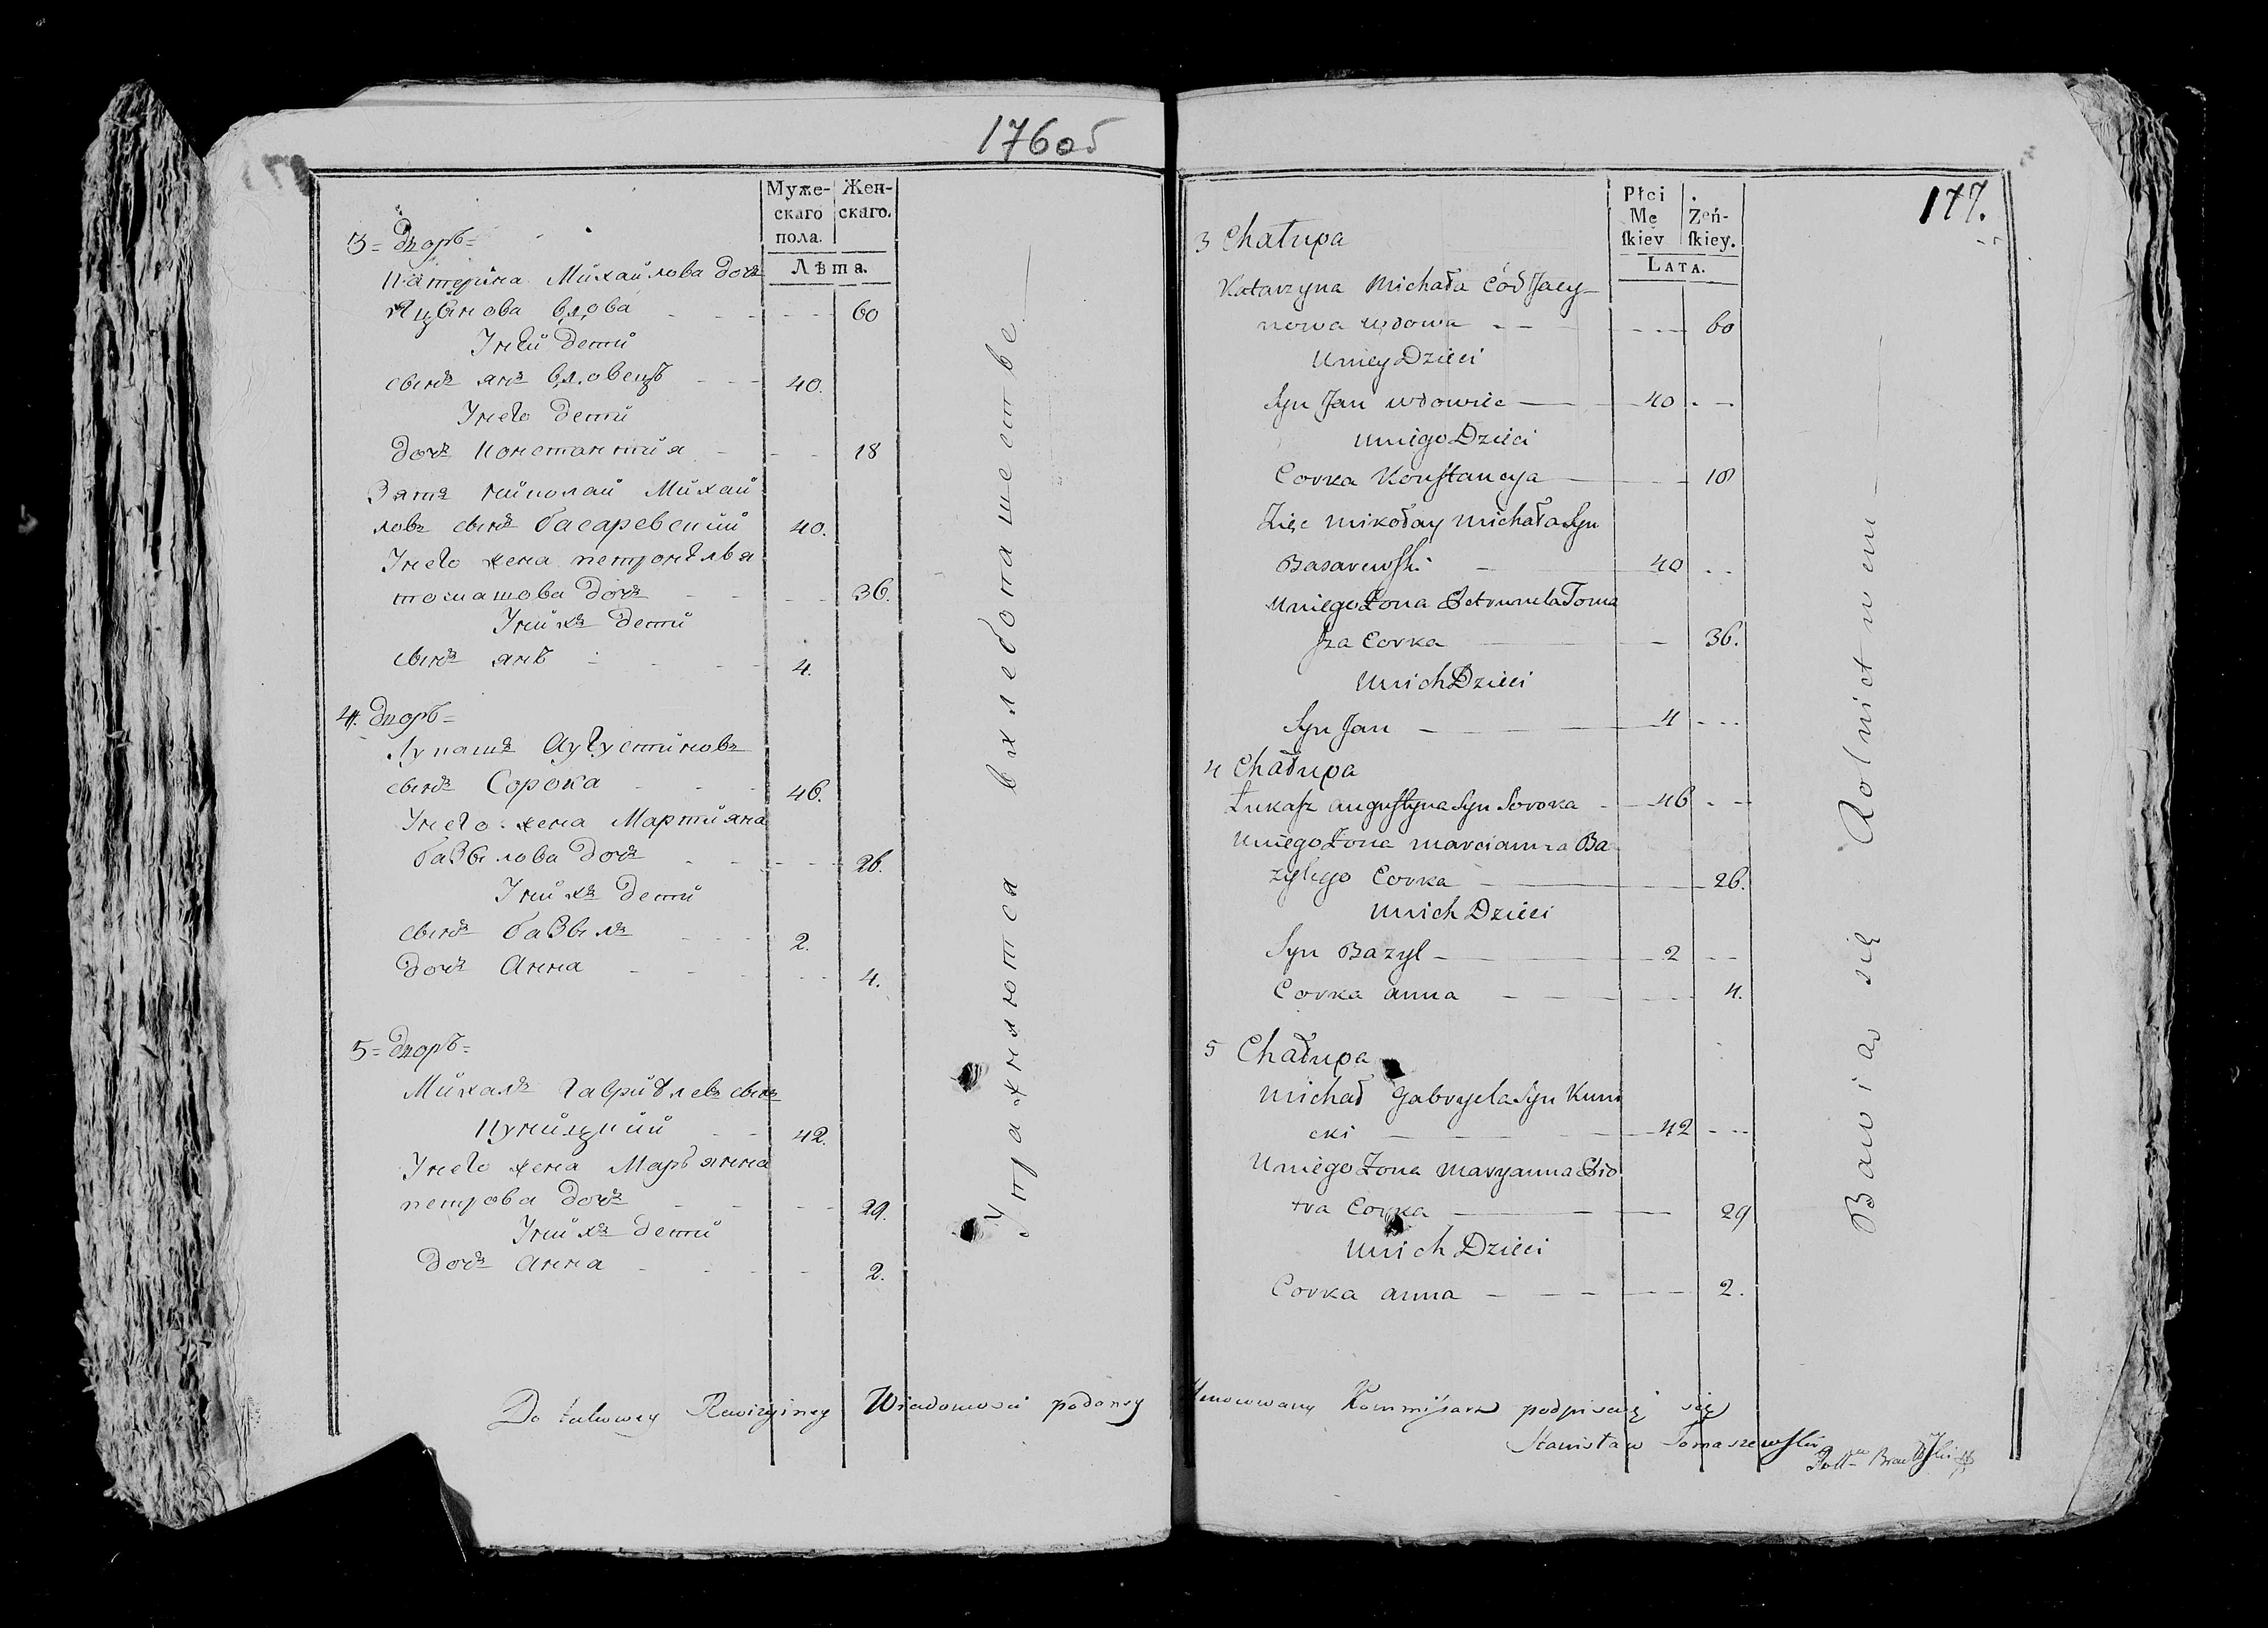 176об
Муже-
скаго
пола.
Жен-
скаго.
Лѣта.
3 = Дворъ =
Катерина Михайлова дочь
Яцынова вдова 60
У ней дети
сынъ янъ вдовецъ 40.
У него дети
дочь Константия 18
Зять николай Михай
ловъ сынъ басаревский 40.
У него жена петронеля
томашова дочь 36.
У нихъ дети
сынъ янъ 4.
4. Дворъ =
Лукашъ Августиновъ
сынъ Сорока 46.
У него жена Мартияна
базылова дочь 26.
У нихъ дети
сынъ базыль 2.
дочь Анна 4.
5 = Дворъ =
Михалъ гаврилевъ сынъ
Куницкий 42.
У него жена Марьянна
петрова дочь 29.
У нихъ дети
дочь Анна 2.
Упражняются в хлебопашестве
177.
Płci
Mę
ſkiey
Zeń-
ſkiey.
LATA.
3 Chałupa
Katarzyna Michała Cód Jacy
nowa wdowa 60
U niey Dzieci
Syn Jan wdowiec 40
U niego Dzieci
Corka Konſtancya 18
Zięc Mikołay Michała Syn
Basarewſki 40
U niego Zona Petrunela Toma
ſza Corka 36.
U nich Dzieci
Syn Jan 4
4 Chałupa
Łukaſz Auguſtyna Syn Soroka 46
U niego Zona Marcianna Ba
zylego Corka 26.
U nich Dzieci
Syn Bazyl 2
Corka anna 4.
5 Chałupa
Michał Gabryela Syn Kuni
cki 42
U niego Zona Maryanna Pio
tra Corka 29
U nich Dzieci
Corka anna 2.
Bawią się Rolnictwem
Do takowey Rewizyiney Wiadomosci podaney Umocowany Kommisarz podpisuię się
Stanisław Tomaszewſki